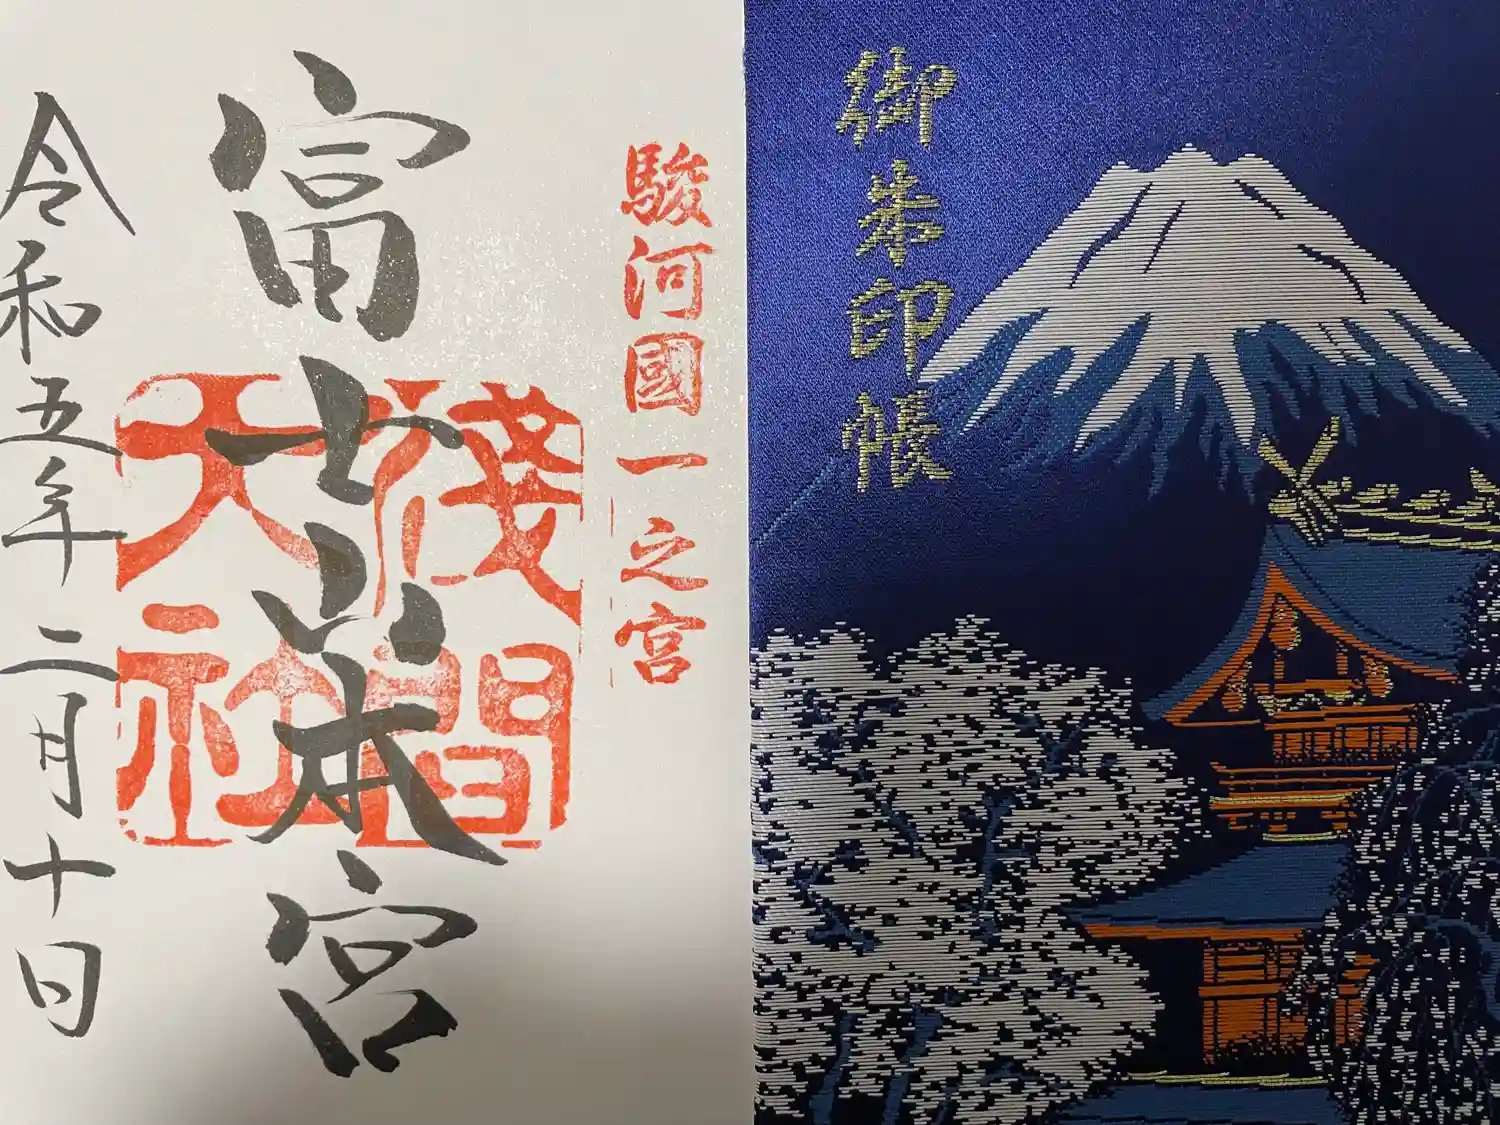 御朱印帳
駿河國一之宮
富士山本宮
淺間大社
令和五年二月十日